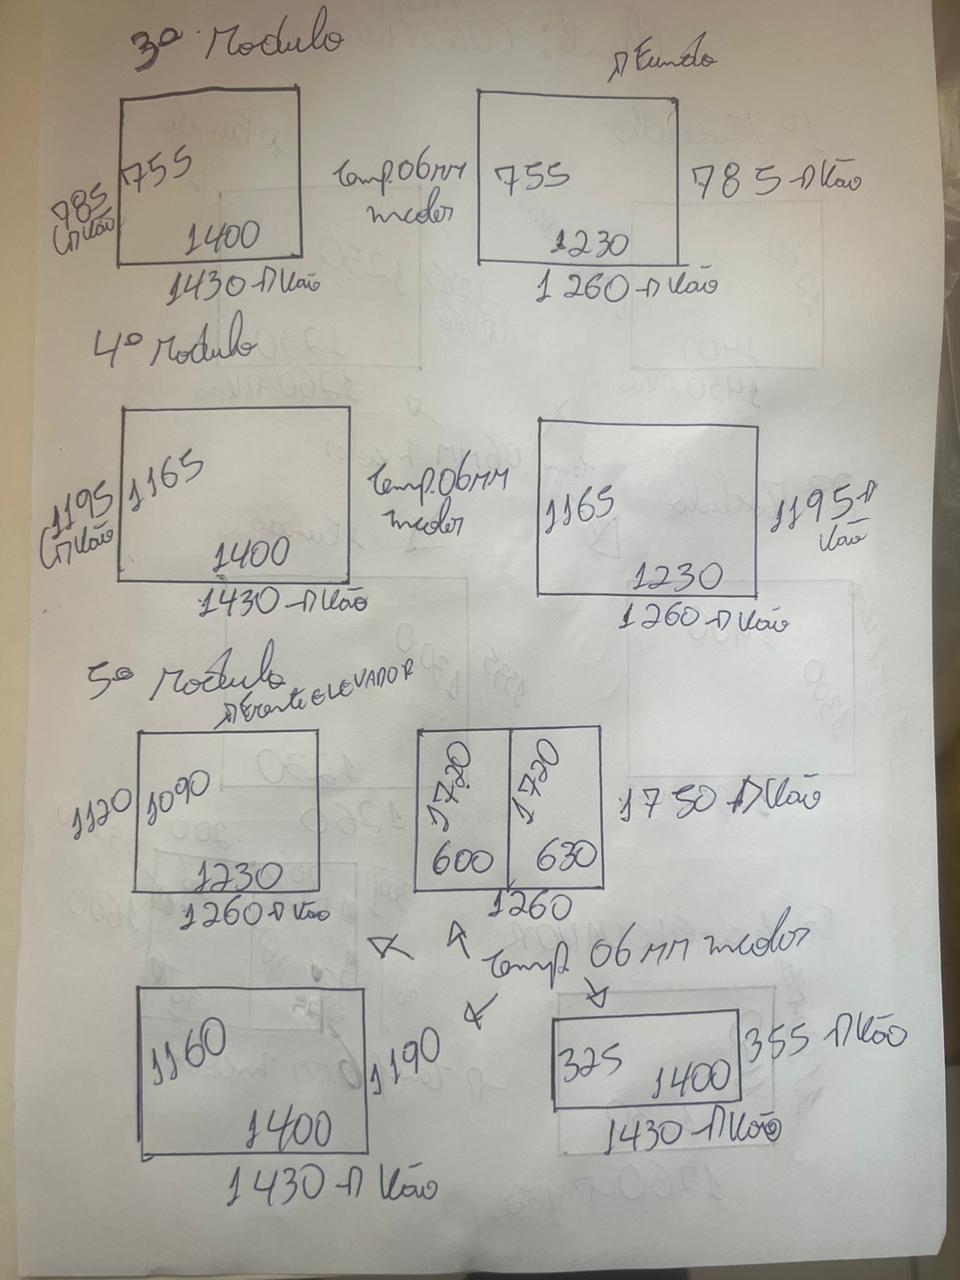 3º Modulo
Fundo
755
785
Vão
1400
1430 Vão
Temp. 06MM
incolor
755
785 Vão
1230
1260 Vão
4º Modulo
1195
Vão
1165
1400
1430 Vão
Temp. 06MM
incolor
1165
1195
Vão
1230
1260 Vão
5º Modulo
Frente ELEVADOR
1120
1090
1230
1260 Vão
1720
1720
600
630
1750 Vão
1260
Temp. 06 MM incolor
1160
1190
1400
1430 Vão
325
1400
355 Vão
1430 Vão